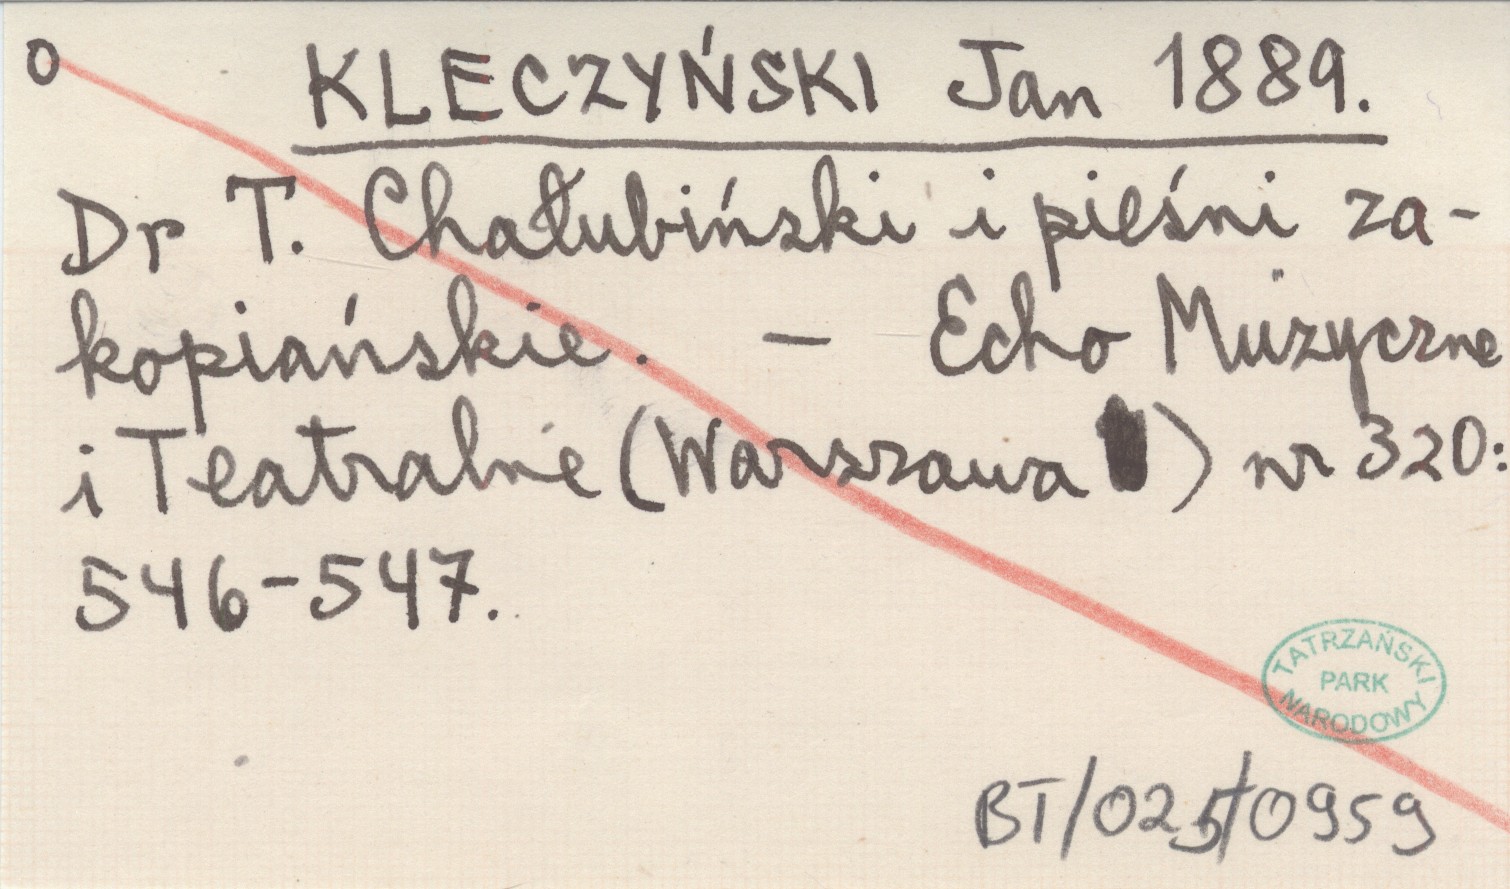 O KLECZYŃSKI Jan 1889.
Dr T. Chałubiński i pieśni za-
kopiańskie. — Echo Muzyczne
i Teatralne (Warszawa ) nr 320:
546-547.
TATRZAŃSKI
PARK
NARODOWY
BT/025/0959